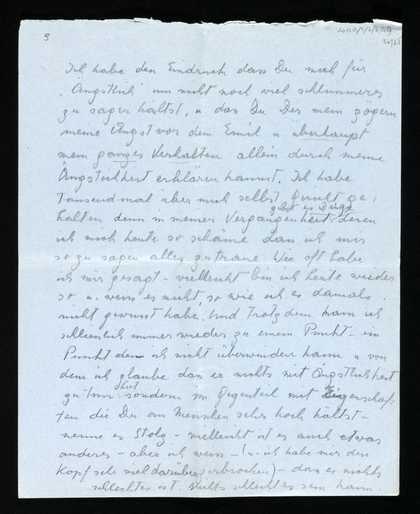 3
Ich habe den Eindruck dass Du mich für
"Ängstlich" um nicht noch viel schlimmeres
zu sagen hältst, u dass Du Dir mein zögern
meine Angst vor dem Emil u überhaupt
mein ganzes Verhalten allein durch meine
Ängstlichkeit erklären kannst. Ich habe
Tausendmal über mich selbst
halten denn in meiner Vergangenheit gibt es Dinge deren
ich mich heute so schäme dass ich mir
so zu sagen alles zutraue. Wie oft habe
ich mir gesagt - vielleicht bin ich heute wieder
so u. weiss es nicht, so wie ich es damals
nicht gewusst habe. Und Trotzdem kam ich
schliesslich immer wieder zu einem Punkt - ein
Punkt den ich nicht überwinden kann u von
dem ich glaube dass er nichts mit Ängstlichkeit
zu tun hat sondern im Gegenteil mit Eigenschaf-
ten die Du am Menschen sehr hoch hältst -
nenne es Stolz - vielleicht ist es auch etwas
anderes - aber ich weiss - (u. ich habe mir den
Kopf sehr viel darüber zerbrochen) - dass es nichts
schlechtes ist. Nichts schlechtes sein kann.